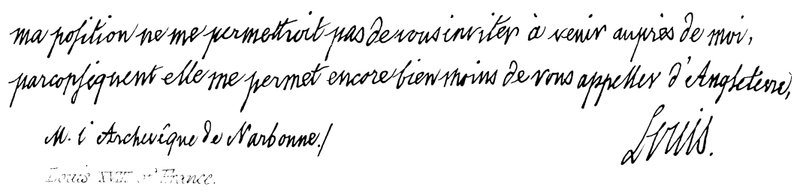 ma position ne me permettroit pas de vous inviter à venir auprès de moi,
par conséquent elle me permet encore bien moins de vous appeller d'Angleterre,
M. l'Archevêque de Narbonne./
Louis.
Louis XVIII of France.